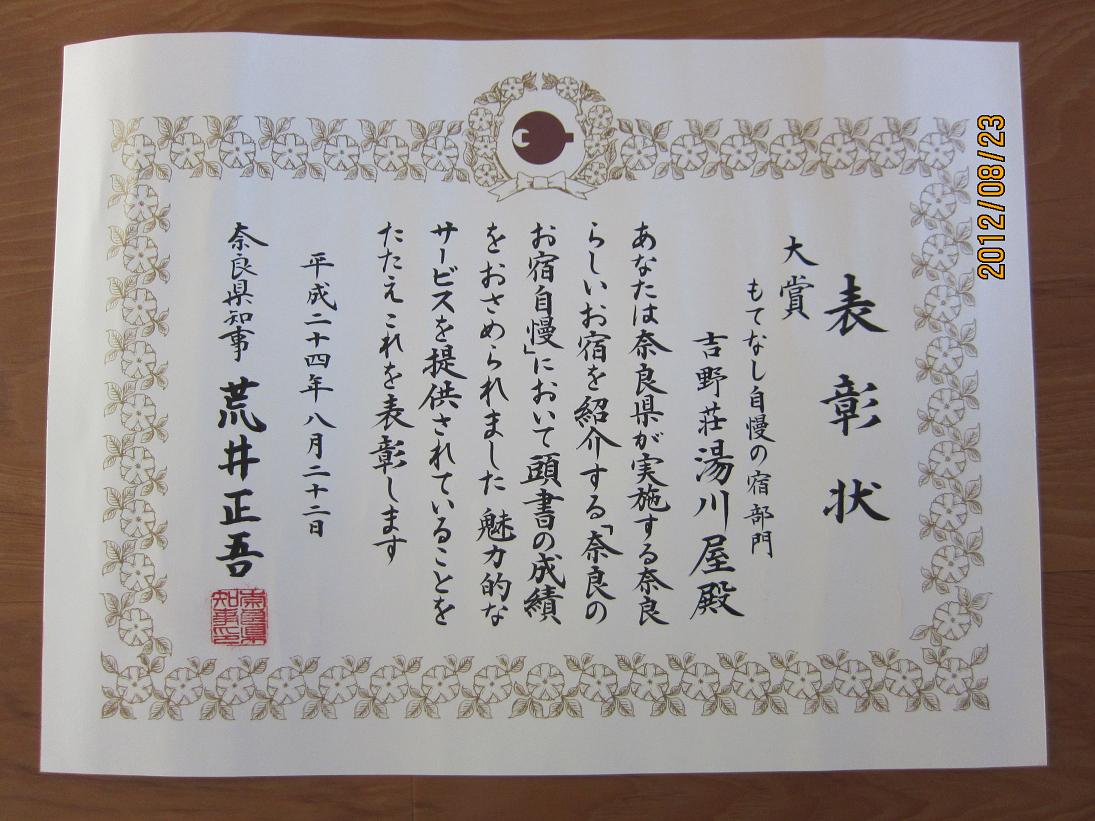 表彰状
大賞
もてなし自慢の宿部門
吉野荘湯川屋殿
あなたは奈良県が実施する奈良
らしいお宿を紹介する「奈良の
お宿自慢」において頭書の成績
をおさめられました 魅力的な
サービスを提供されていることを
たたえこれを表彰します
平成二十四年八月二十二日
奈良県知事 荒井正吾
奈良県知事之印
2012/08/23